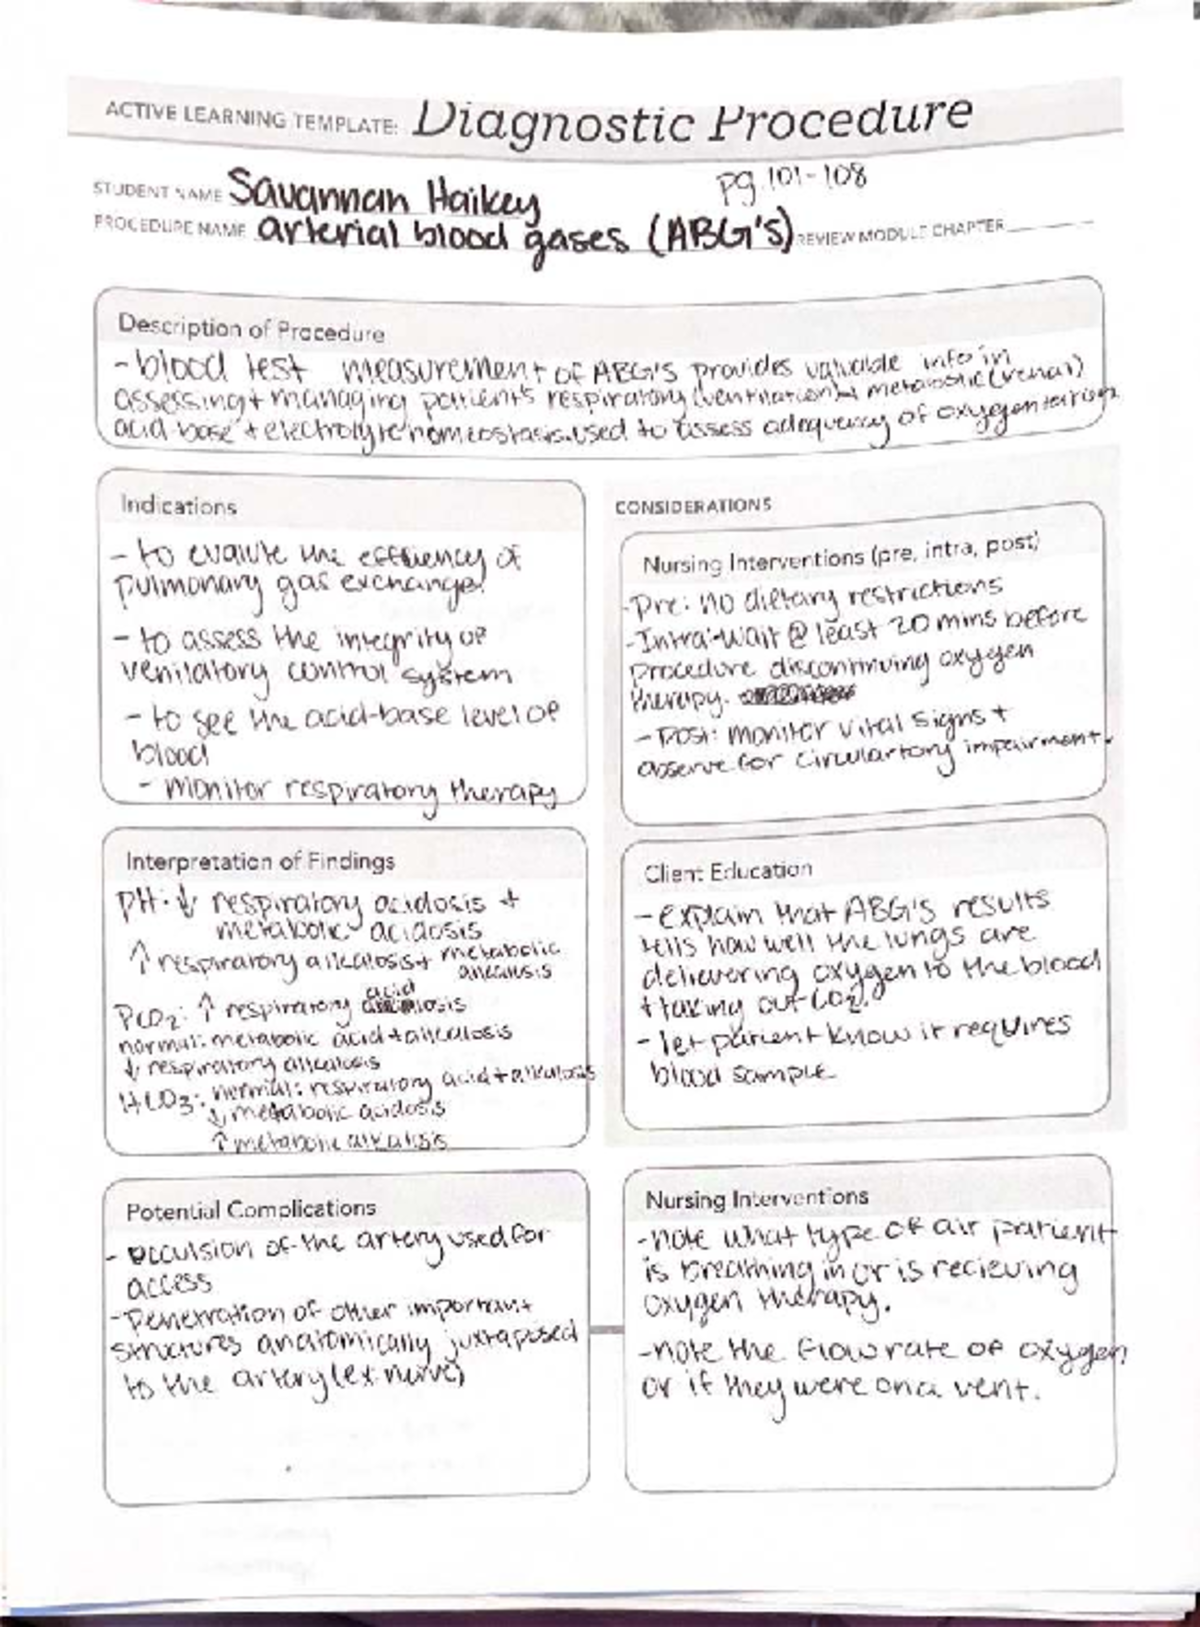 ACTIVE LEARNING TEMPLATE: Diagnostic Procedure
STUDENT NAME Savannah Haikey pg. 101-108
PROCEDURE NAME arterial blood gases (ABG'S) REVIEW MODULE CHAPTER
Description of Procedure
- blood test measurement of ABG'S provides valuable info in
assessing + managing patient's respiratory (ventilation) + metabolic (renal)
acid-base + electrolyte homeostasis. used to assess adequacy of oxygenation
Indications
- to evalute the efficiency of
pulmonary gas exchange.
- to assess the integrity of
venilatory control system
- to see the acid-base level of
blood
- monitor respiratory therapy
CONSIDERATIONS
Nursing Interventions (pre, intra, post)
- Pre: no dietary restrictions
- Intra: wait @ least 20 mins before
procedure discontinuing oxygen
therapy.
- Post: monitor vital signs +
observe for circulartory impairment.
Interpretation of Findings
PH: ↓ respiratory acidosis +
metabolic acidosis
↑ respiratory alkalosis + metabolic
alkalosis
PCO2: ↑ respiratory acidosis
normal: metabolic acid + alkalosis
↓ respiratory alkalosis
HCO3: normal: respiratory acid + alkalosis
↓ metabolic acidosis
↑ metabolic alkalosis
Client Education
- explain that ABG'S results
tells how well the lungs are
delievering oxygen to the blood
+ taking out CO2.
- let patient know it requires
blood sample
Potential Complications
- occulsion of the artery used for
access
- Penetration of other important
structures anatomically juxtaposed
to the artery (ex nerve)
Nursing Interventions
- note what type of air patient
is breathing in or is recieving
oxygen therapy.
- note the flow rate of oxygen
or if they were on a vent.